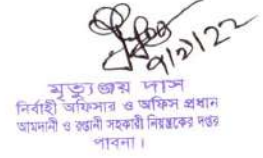 ৭/২/২২
মৃত্যুঞ্জয় দাস
নির্বাহী অফিসার ও অফিস প্রধান
আমদানী ও রপ্তানী সহকারী নিয়ন্ত্রকের দপ্তর
পাবনা।